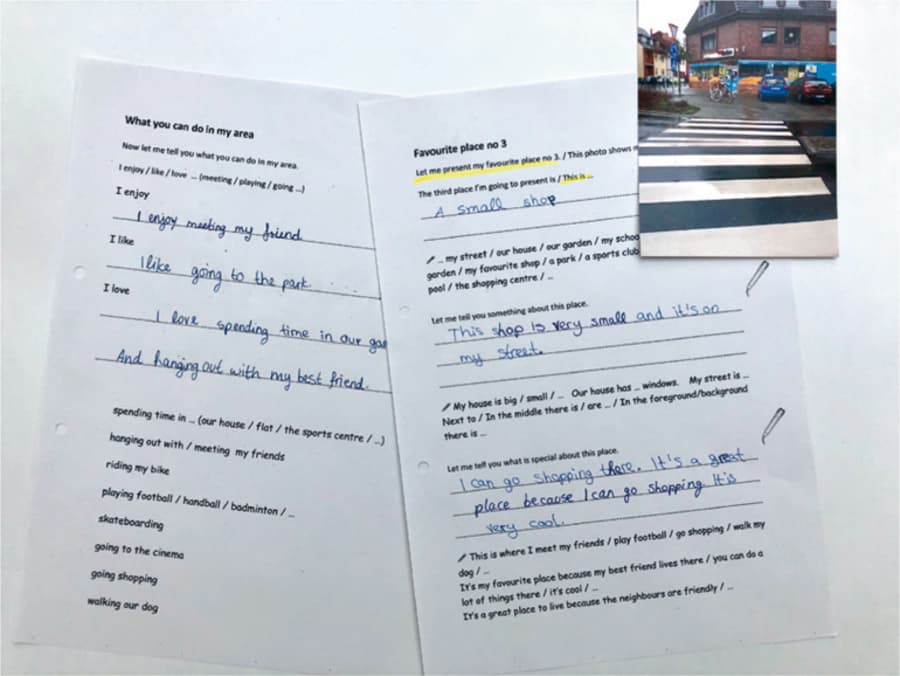 What you can do in my area
Now let me tell you what you can do in my area.
I enjoy / like / love ... (meeting / playing / going ...)
I enjoy
I enjoy meeting my friend
I like
I like going to the park
I love
I love spending time in our
And hanging out with my best friend.
spending time in ... (our house / flat / the sports centre / ...)
hanging out with / meeting my friends
riding my bike
playing football / handball / badminton / ...
skateboarding
going to the cinema
going shopping
walking our dog
Favourite place no 3
Let me present my favourite place no 3. / This photo shows
The third place I'm going to present is / This is ...
A small shop
... my street / our house / our garden / my
garden / my favourite shop / a park / a sports club
pool / the shopping centre / ...
Let me tell you something about this place.
This shop is very small and it's on
my street.
My house is big / small / ... Our house has ... windows. My street is ...
Next to / In the middle there is / are ... / In the foreground/background
there is ...
Let me tell you what is special about this place.
I can go shopping there. It's a great
place because I can go shopping. It is
very cool.
This is where I meet my friends / play football / go shopping / walk my
dog / ...
It's my favourite place because my best friend lives there / you can do a
lot of things there / it's cool / ...
It's a great place to live because the neighbours are friendly / ...